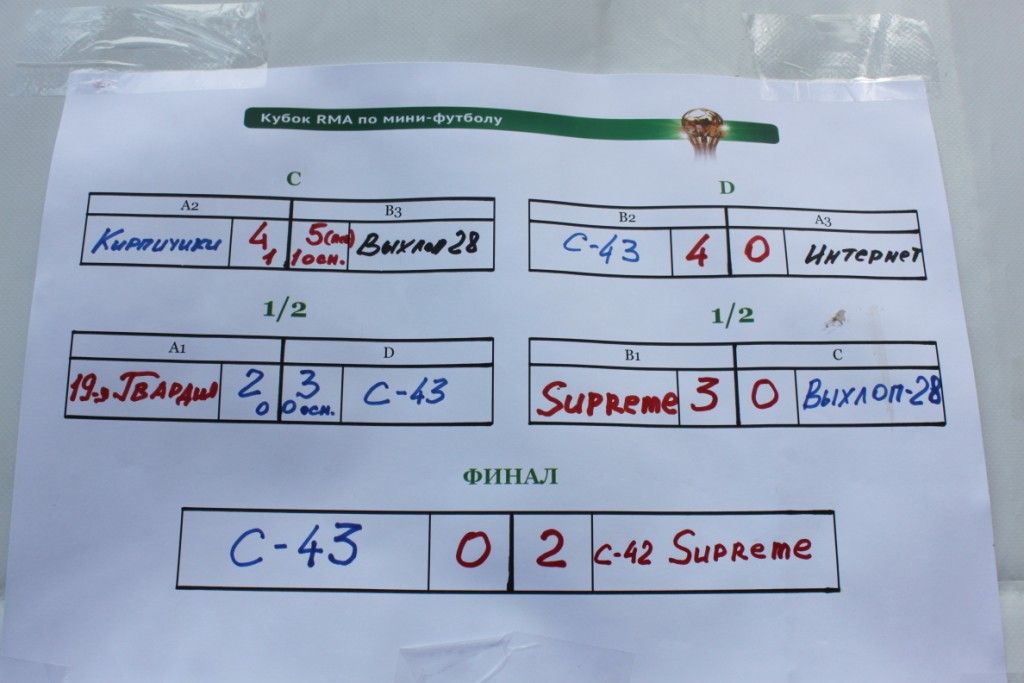 Кубок RMA по мини-футболу
C
D
A2 B3
Кирпичики 4 5 Выхлоп 28
1 1 осн.
B2 A3
С-43 4 0 Интернет
1/2
1/2
A1 D
19-я Гвардия 2 3 С-43
0 0 осн.
B1 C
Supreme 3 0 Выхлоп-28
ФИНАЛ
С-43 0 2 С-42 Supreme